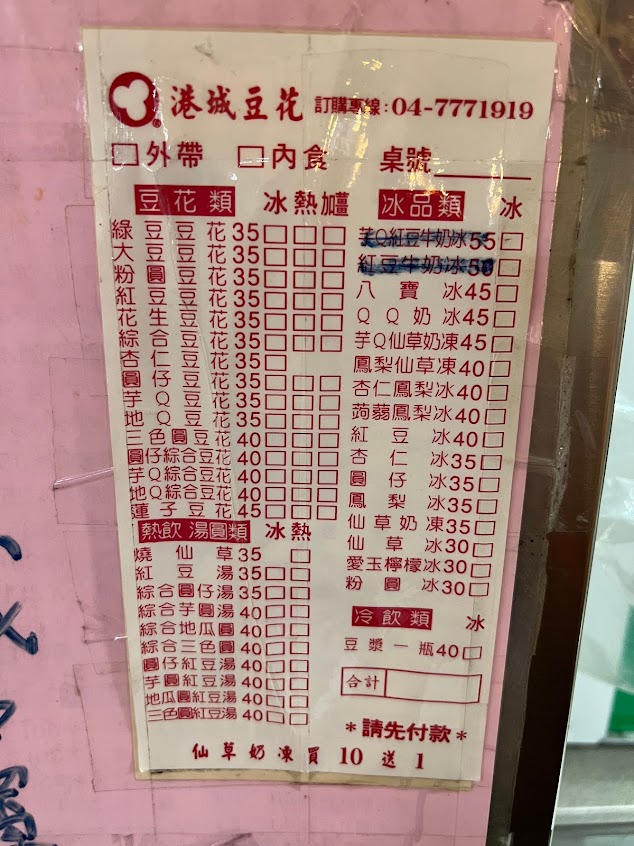 港城豆花 訂購專線:04-7771919
□外帶 □內食 桌號
豆花類 冰 熱 加薑
綠豆豆花35□□□
大豆豆花35□□□
粉圓豆花35□□□
紅豆豆花35□□□
花生豆花35□□□
綜合豆花35□□□
杏仁豆花35□
圓仔豆花35□□□
芋Q豆花35□□□
地Q豆花35□□□
三色圓豆花40□□□
圓仔綜合豆花40□□□
芋Q綜合豆花40□□□
地Q綜合豆花40□□□
蓮子豆花45□□□
熱飲 湯圓類 冰 熱
燒仙草35 □
紅豆湯35□□
綜合圓仔湯35□□
綜合芋圓湯40□□
綜合地瓜圓40□□
綜合三色圓40□□
圓仔紅豆湯40□□
芋圓紅豆湯40□□
地瓜圓紅豆湯40□□
三色圓紅豆湯40□□
冰品類 冰
芋Q紅豆牛奶冰55□
紅豆牛奶冰50□
八寶冰45□
QQ奶冰45□
芋Q仙草奶凍45□
鳳梨仙草凍40□
杏仁鳳梨冰40□
蒟蒻鳳梨冰40□
紅豆冰40□
杏仁冰35□
圓仔冰35□
鳳梨冰35□
仙草奶凍35□
仙草冰30□
愛玉檸檬冰30□
粉圓冰30□
冷飲類 冰
豆漿一瓶40□
合計
*請先付款*
仙草奶凍買10送1